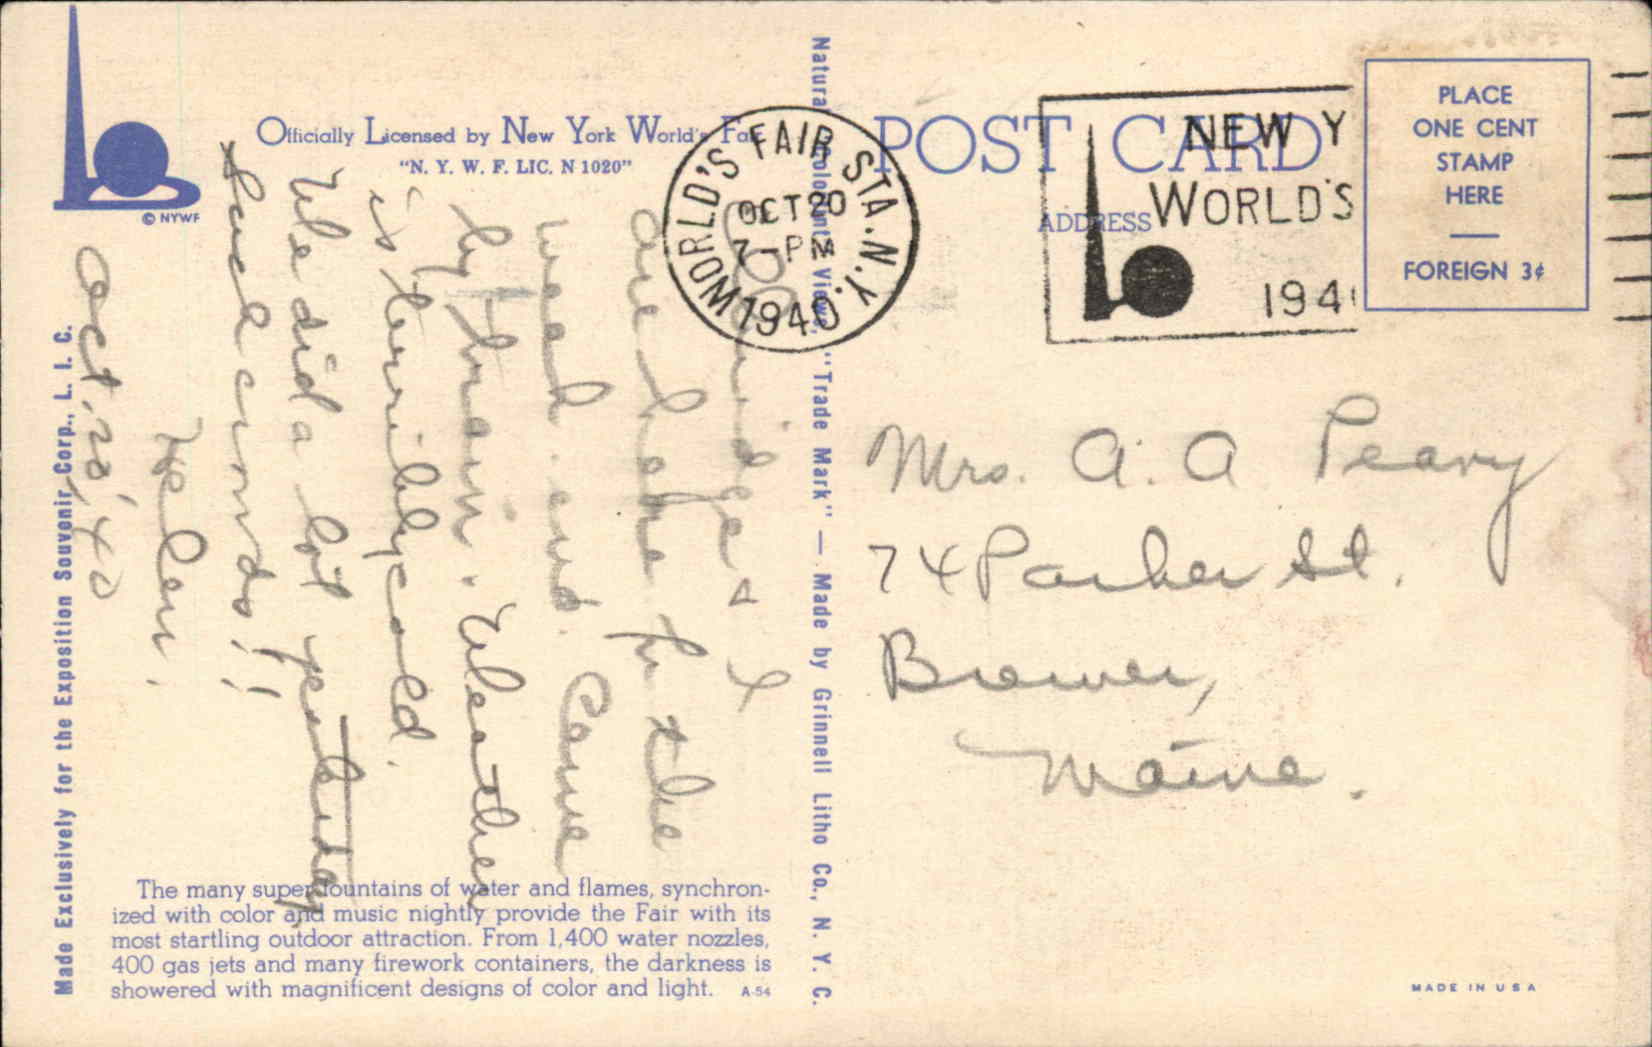 Officially Licensed by New York World's Fair
"N. Y. W. F. LIC. N 1020"
© NYWF
Made Exclusively for the Exposition Souvenir Corp., L. I. C.
& I
are here for the
week-end. Came
by train. Weather
is terribly cold.
We did a lot yesterday
Such crowds!!!
Helen.
Oct. 20, '40
The many super fountains of water and flames, synchron-
ized with color and music nightly provide the Fair with its
most startling outdoor attraction. From 1,400 water nozzles,
400 gas jets and many firework containers, the darkness is
showered with magnificent designs of color and light. A-54
Natural Colored Views "Trade Mark" — Made by Grinnell Litho Co., N. Y. C.
WORLD'S FAIR STA. N.Y.
OCT 20
7-PM
1940
POST CARD
ADDRESS
NEW Y
WORLD'S
194
PLACE
ONE CENT
STAMP
HERE
FOREIGN 3¢
Mrs. A. A Peavy
74 Parker St.
Brewer,
Maine.
MADE IN USA